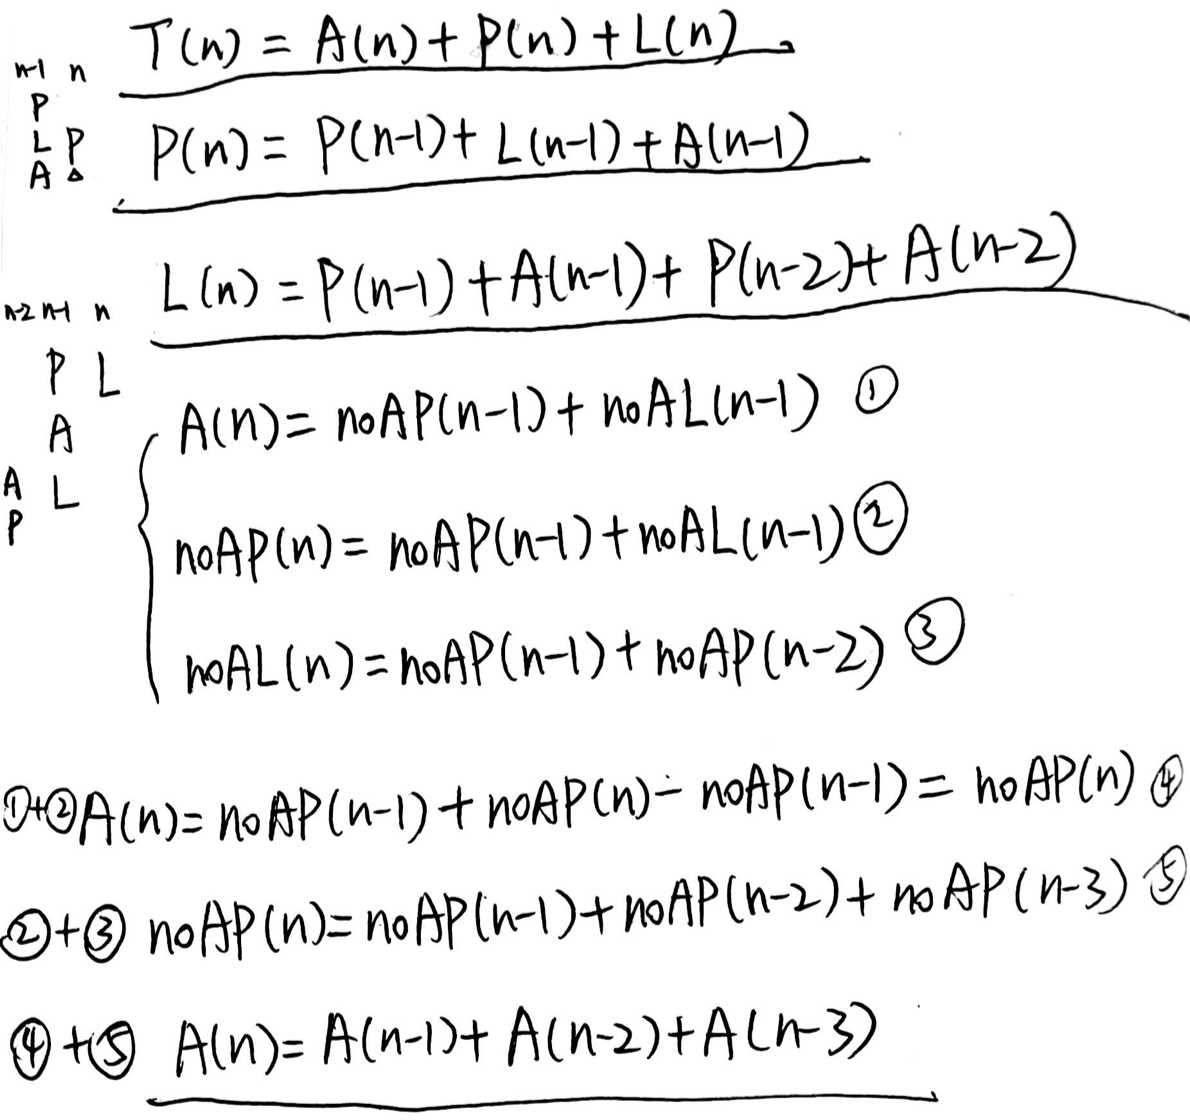 T(n) = A(n) + P(n) + L(n)
n-1 n
P
L P
A
P(n) = P(n-1) + L(n-1) + A(n-1)
L(n) = P(n-1) + A(n-1) + P(n-2) + A(n-2)
n-2 n-1 n
P L
A
A L
P
A(n) = noAP(n-1) + noAL(n-1) ①
noAP(n) = noAP(n-1) + noAL(n-1) ②
noAL(n) = noAP(n-1) + noAP(n-2) ③
①+② A(n) = noAP(n-1) + noAP(n) - noAP(n-1) = noAP(n) ④
②+③ noAP(n) = noAP(n-1) + noAP(n-2) + noAP(n-3) ⑤
④+⑤ A(n) = A(n-1) + A(n-2) + A(n-3)